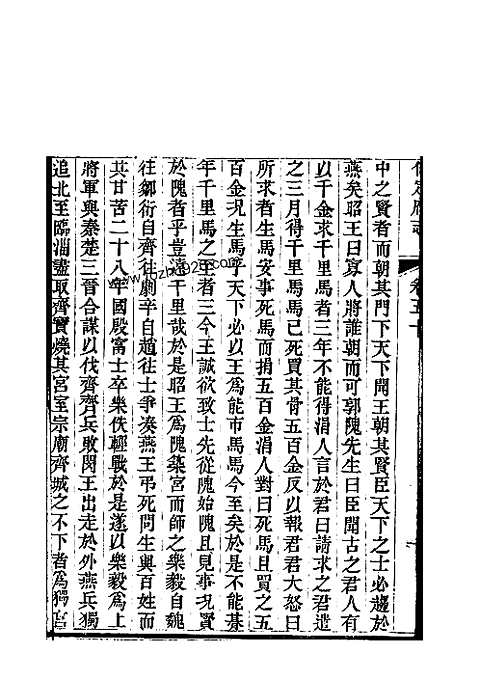 卷五十
中之賢者而朝其門下天下聞王朝其賢臣天下之士必趨於
燕矣昭王曰寡人將誰朝而可郭隗先生曰臣聞古之君人有
以千金求千里馬者三年不能得涓人言於君曰請求之君遣
之三月得千里馬馬已死買其骨五百金反以報君君大怒曰
所求者生馬安事死馬而捐五百金涓人對曰死馬且買之五
百金况生馬乎天下必以王爲能市馬馬今至矣於是不能朞
年千里馬之至者三今王誠欲致士先從隗始隗且見事况賢
於隗者乎豈遠千里哉於是昭王爲隗築宮而師之樂毅自魏
往鄒衍自齊往劇辛自趙往士爭湊燕王弔死問生與百姓同
其甘苦二十八年國殷富士卒樂佚輕戰於是遂以樂毅爲上
將軍與秦楚三晉合謀以伐齊齊兵敗閔王出走於外燕兵獨
追北至臨淄盡取齊寶燒其宮室宗廟齊城之不下者爲獨莒